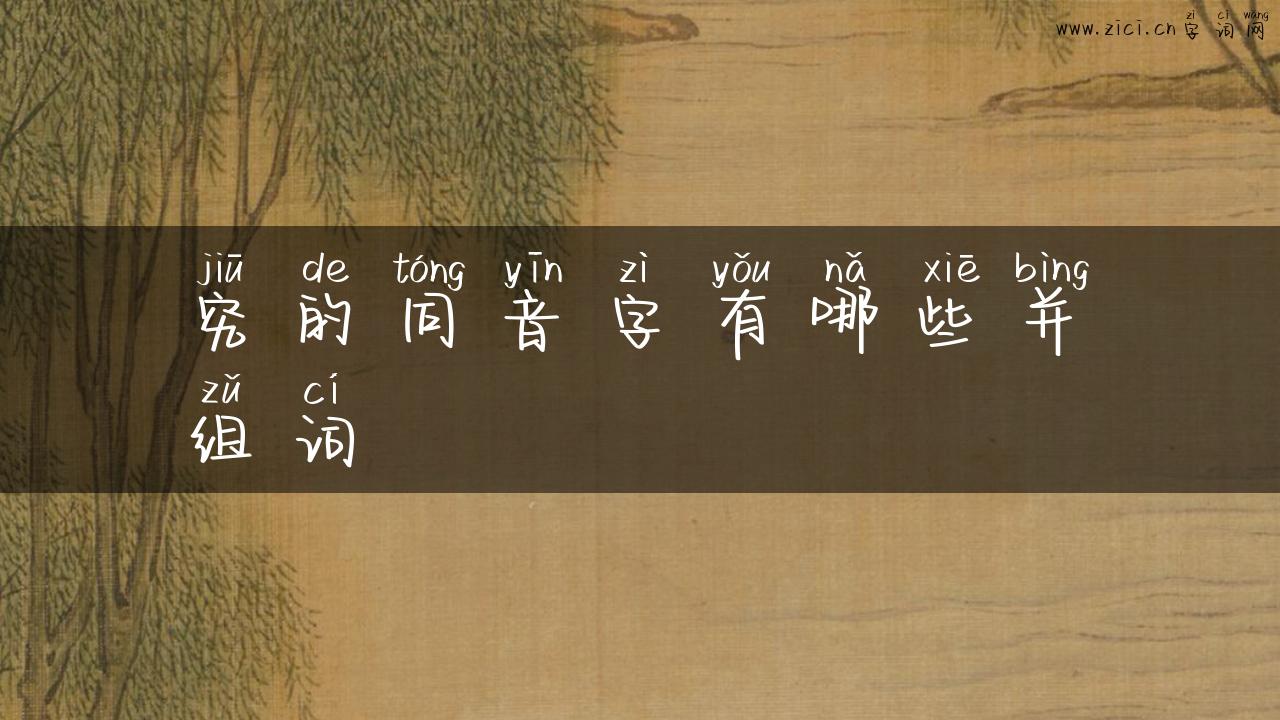 zì cí wǎng
www.zici.cn字词网
jiū de tóng yīn zì yǒu nǎ xiē bìng
究的同音字有哪些并
zǔ cí
组词